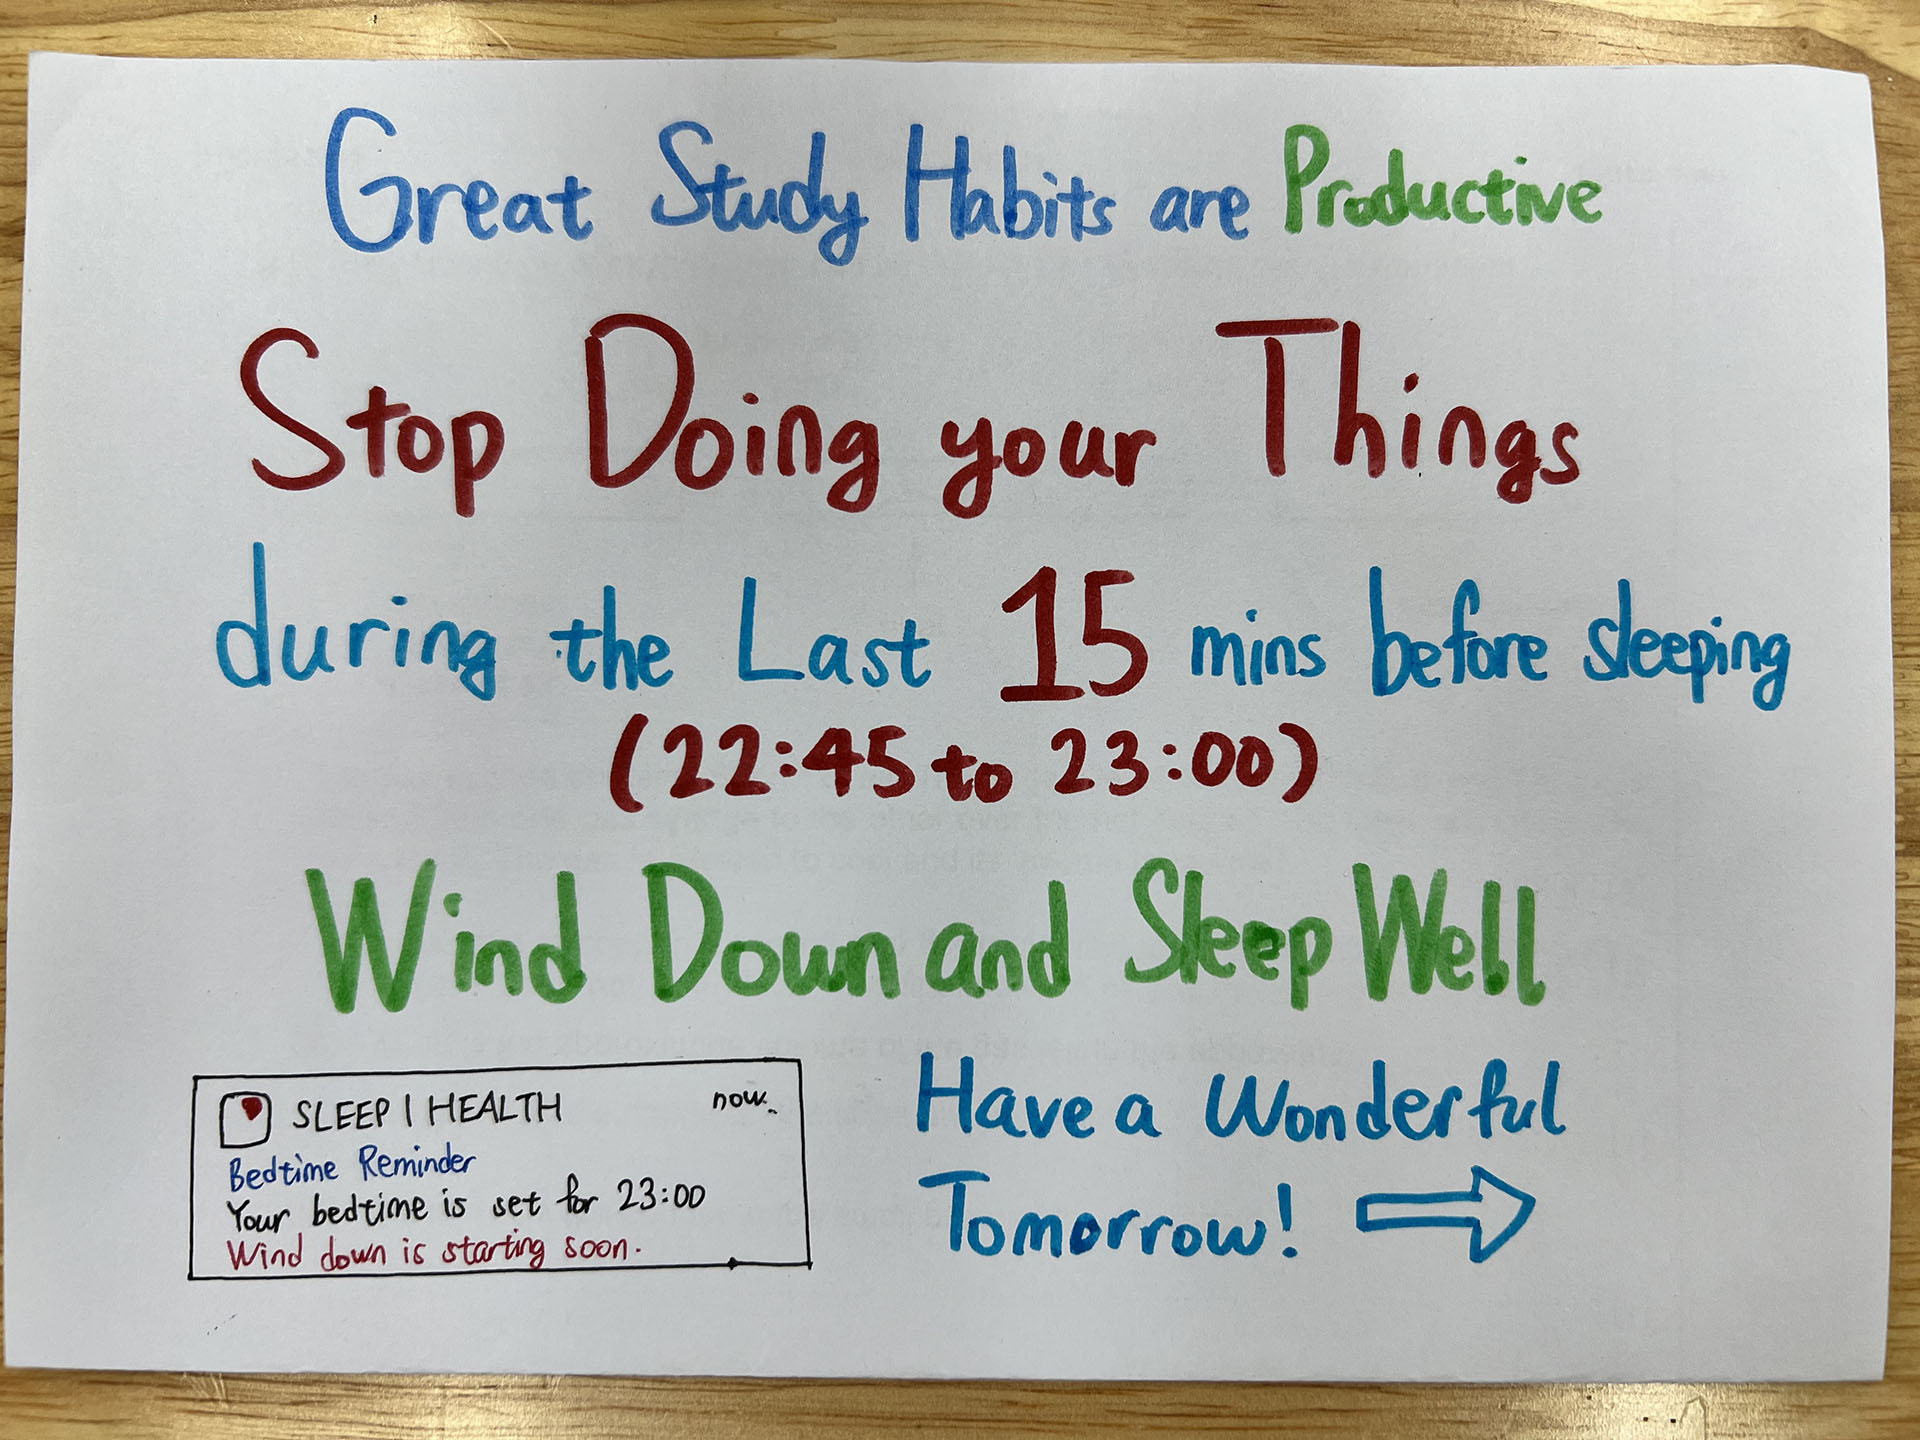 Great Study Habits are Productive
Stop Doing your Things
during the Last 15 mins before sleeping
(22:45 to 23:00)
Wind Down and Sleep Well
SLEEP | HEALTH now.
Bedtime Reminder
Your bedtime is set for 23:00
Wind down is starting soon.
Have a Wonderful
Tomorrow!